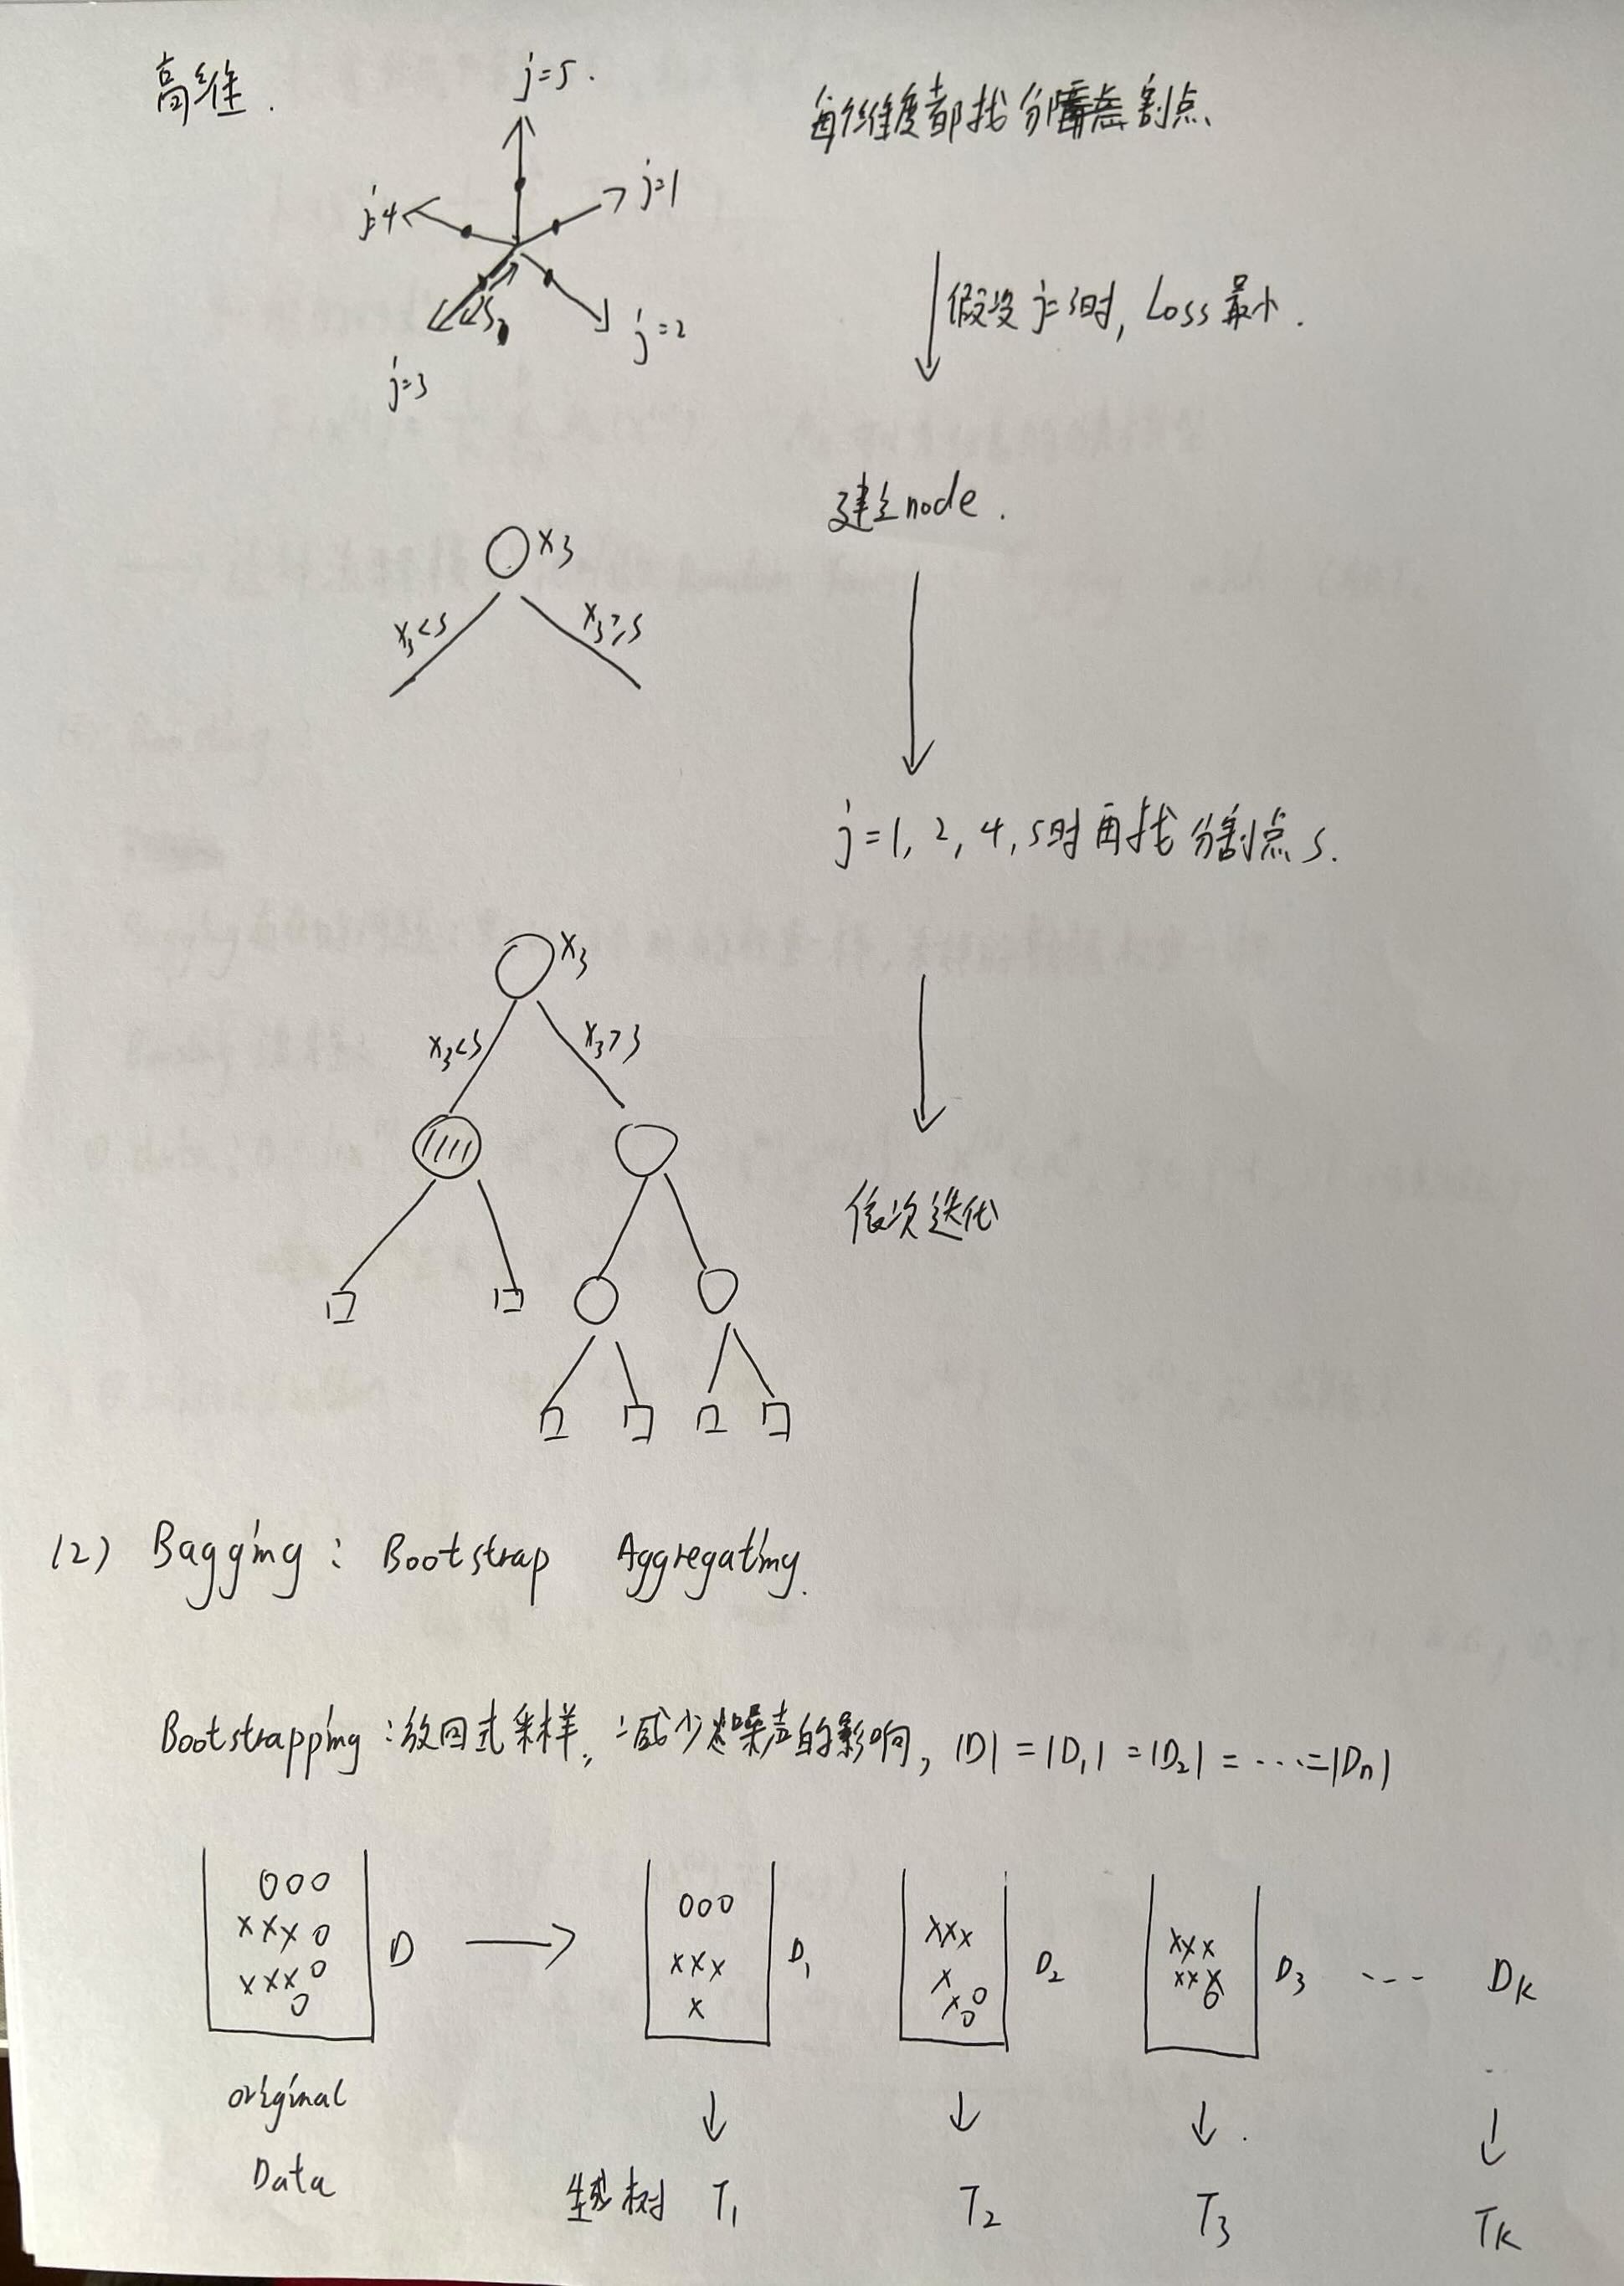 高维.
j=5.
每个维度都找分割点
j=4
j=1
j=3
j=2
假设 j=3时, Loss 最小.
建立node.
x3
x3<s
x3≥s
j=1, 2, 4, 5时 再找 分割点 s.
x3
x3<s
x3>s
依次迭代
(2) Bagging: Bootstrap Aggregating.
Bootstrapping: 放回式采样, 减少噪声的影响, |D| = |D1| = |D2| = ··· = |Dn|
000
xxx0
xxx0
0
D
000
xxx
x
D1
xxx
x
x0
0
D2
xxx
xxx
0
D3 --- Dk
original
Data
生成树 T1 T2 T3 Tk